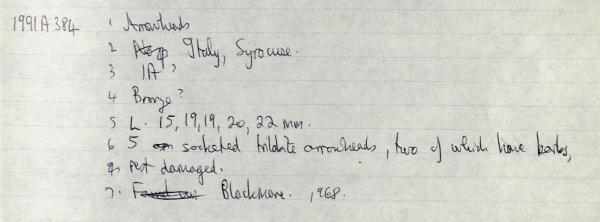 1991A384 1 Arrowheads
2 Italy, Syracuse.
3 IA?
4 Bronze?
5 L. 15, 19, 19, 20, 22 mm.
6 5 socketed trilobite arrowheads, two of which have barbs,
rest damaged.
7. Blackmore. 1968.